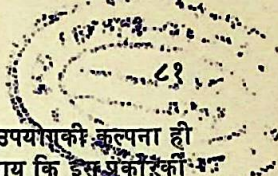 ८१
उपयोगकी कल्पना ही
य कि इस प्रकारकी